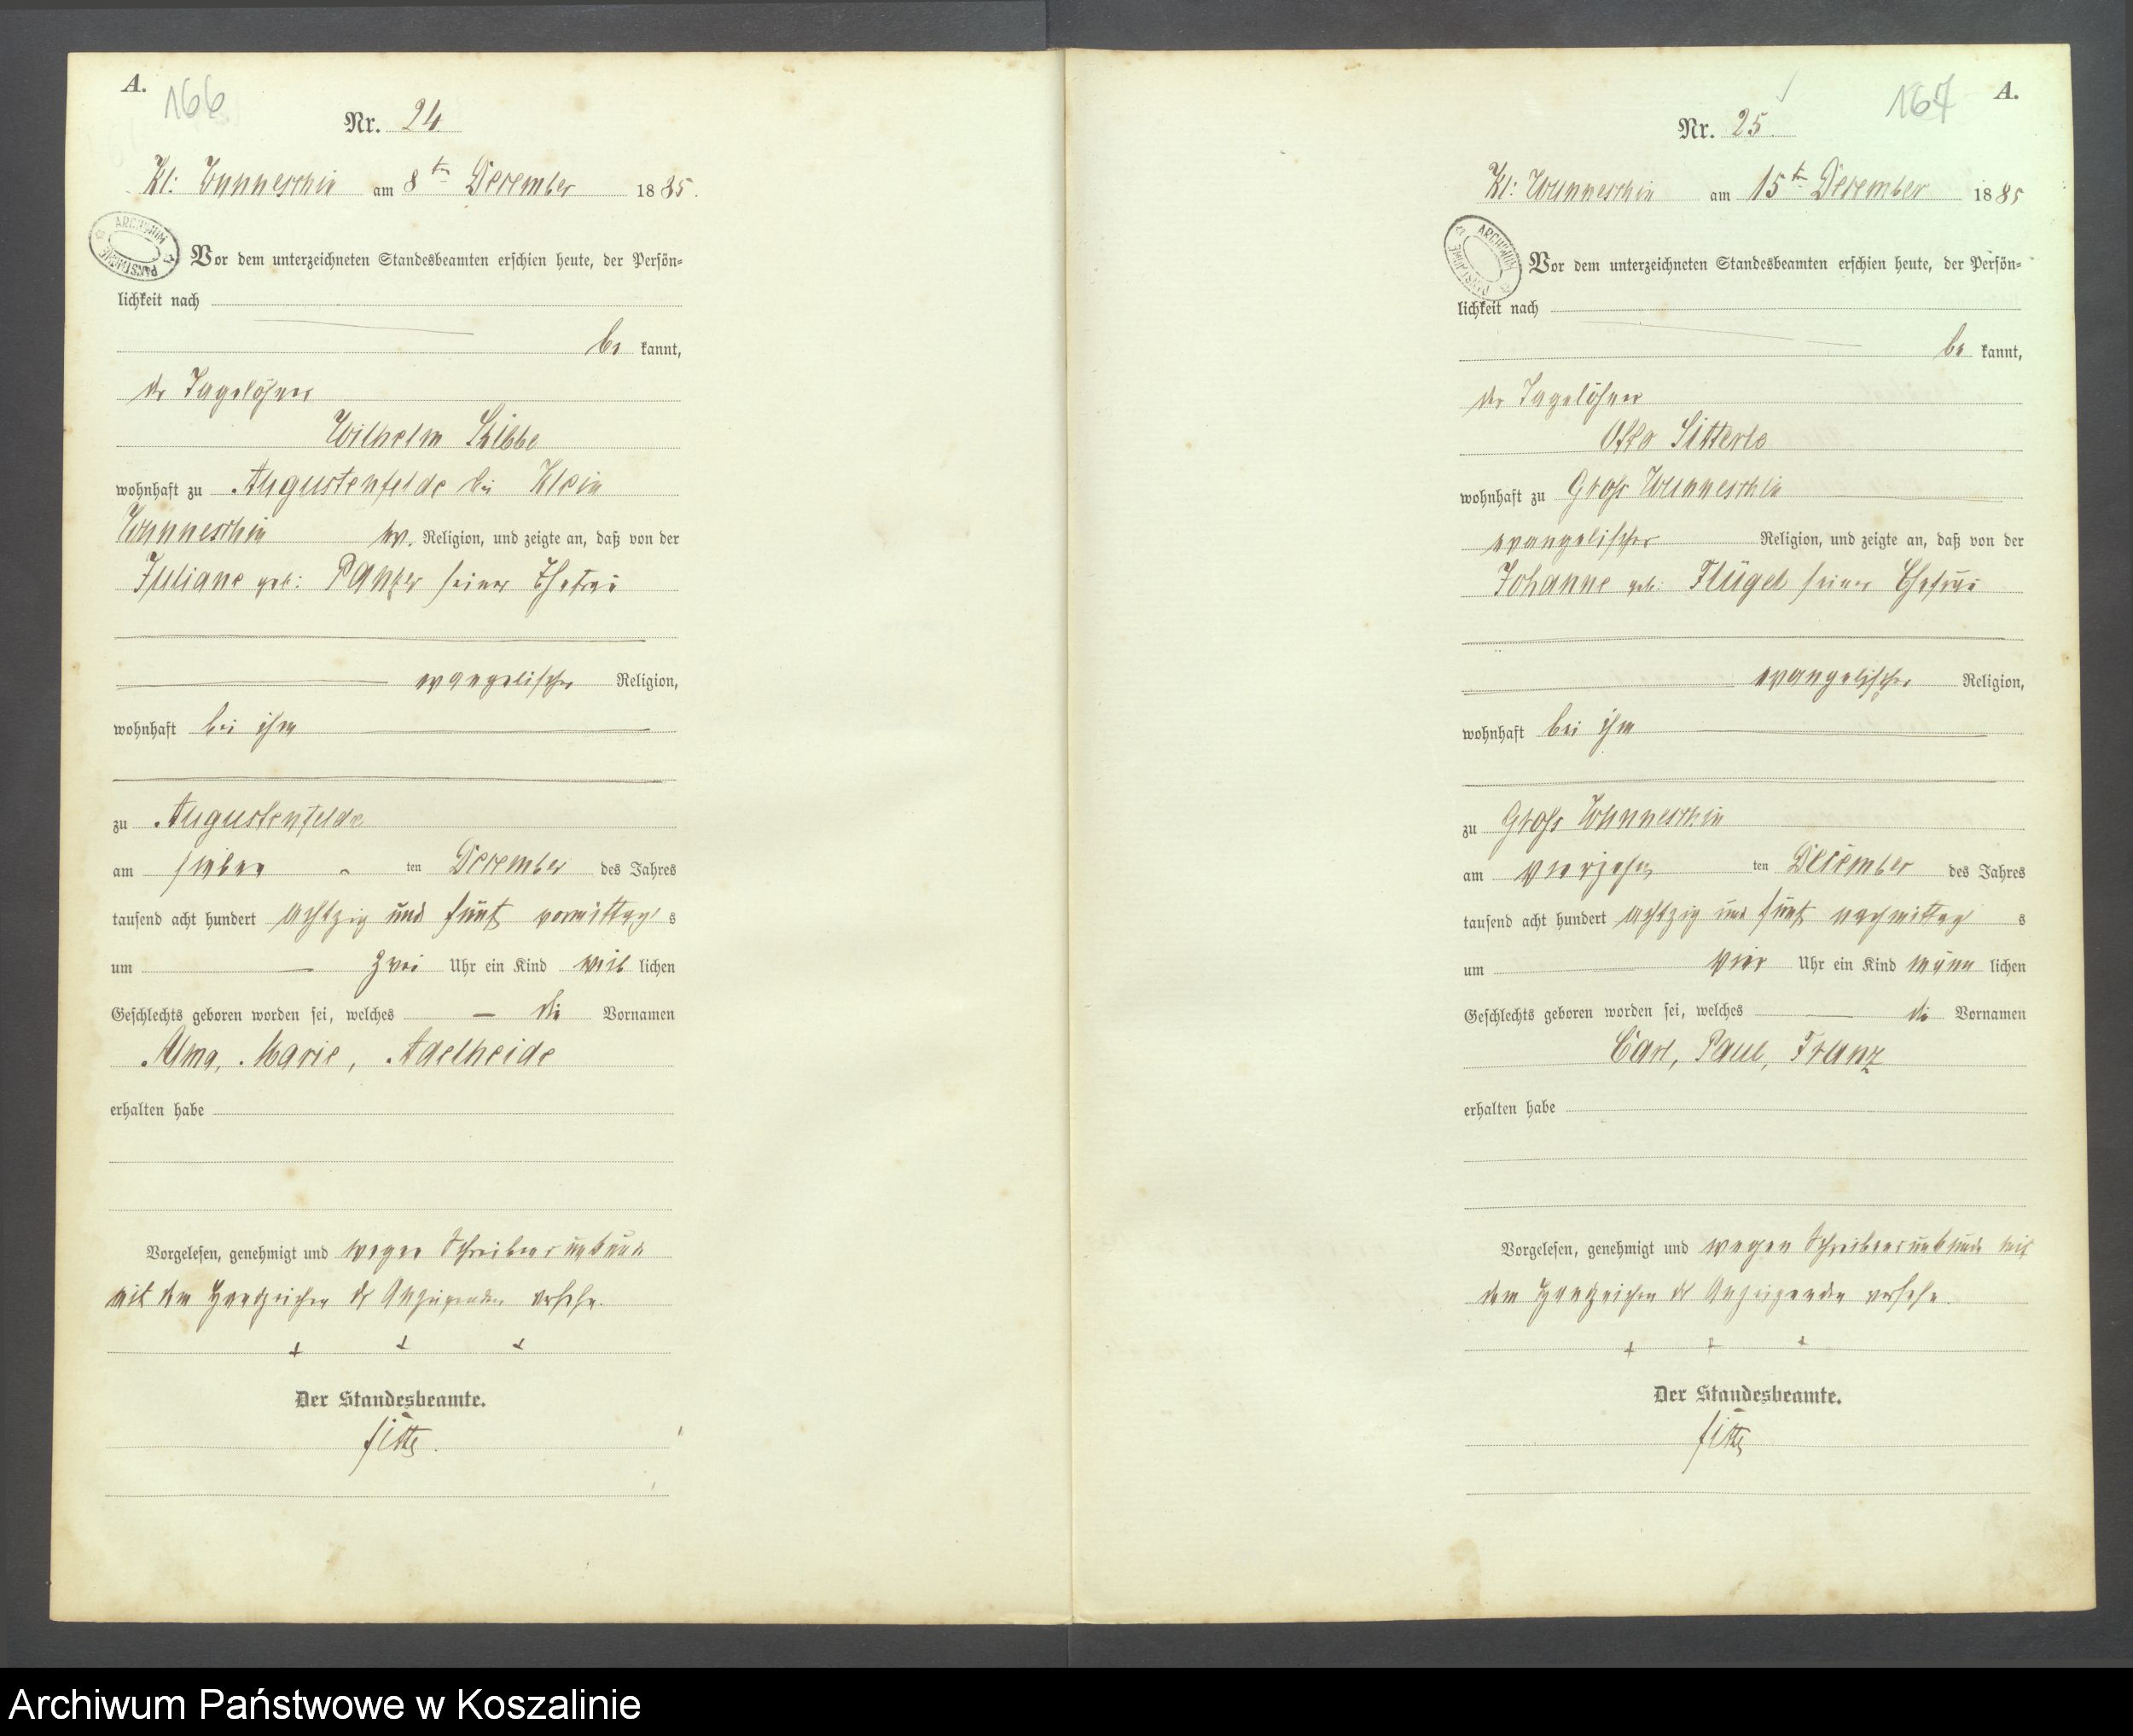 A.
166
Nr. 24
Kl: Wunneschin am 8ten December 1885.
ARCHIWUM PAŃSTWOWE
Vor dem unterzeichneten Standesbeamten erschien heute, der Persön-
lichkeit nach
be kannt,
der Tagelöhner
Wilhelm
wohnhaft zu Augustenfelde bei Klein
Wunneschin ev. Religion, und zeigte an, daß von der
Juliane geb: Panzer seiner Ehefrau
evangelischer Religion,
wohnhaft bei ihm
zu Augustenfelde
am sieben ten December des Jahres
tausend acht hundert achtzig und fünf vormittags
um zwei Uhr ein Kind weiblichen
Geschlechts geboren worden sei, welches die Vornamen
Alma, Marie, Adelheide
erhalten habe
Vorgelesen, genehmigt und wegen Schreibensunkunde
mit dem Handzeichen des Anzeigenden versehen.
+ + +
Der Standesbeamte.
A.
167
Nr. 25.
Kl: Wunneschin am 15ten December 1885
ARCHIWUM PAŃSTWOWE
Vor dem unterzeichneten Standesbeamten erschien heute, der Persön-
lichkeit nach
be kannt,
der Tagelöhner
Otto Sitterle
wohnhaft zu Groß Wunneschin
evangelischer Religion, und zeigte an, daß von der
Johanne geb: Flügel seiner Ehefrau
evangelischer Religion,
wohnhaft bei ihm
zu Groß Wunneschin
am vierzehn ten December des Jahres
tausend acht hundert achtzig und fünf nachmittags
um vier Uhr ein Kind männlichen
Geschlechts geboren worden sei, welches die Vornamen
Carl, Paul, Franz
erhalten habe
Vorgelesen, genehmigt und wegen Schreibensunkunde mit
dem Handzeichen des Anzeigenden versehen.
+ + +
Der Standesbeamte.
Archiwum Państwowe w Koszalinie